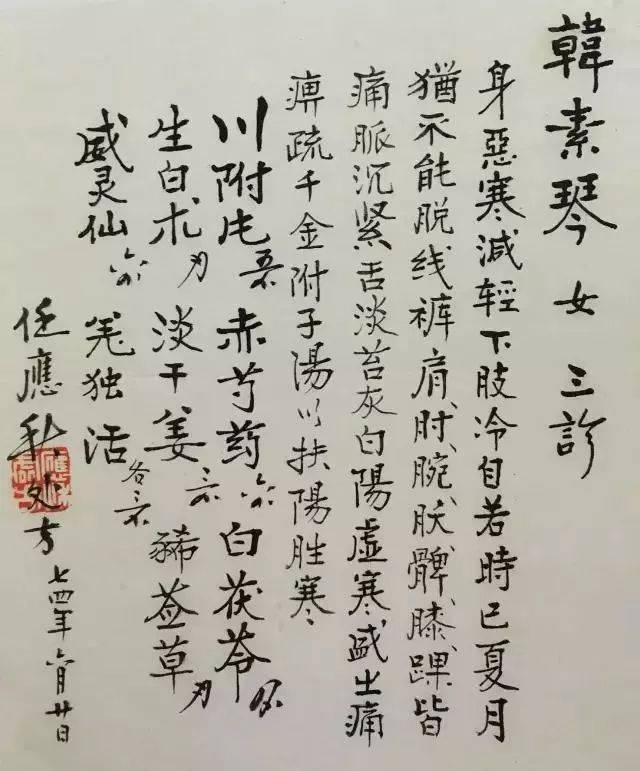 韓素琴 女 三診
身惡寒減輕下肢冷自若時已夏月
猶不能脱线裤肩、肘、腕、肷、髀、膝、踝、皆
痛脈沉紧舌淡苔灰白陽虚寒盛之痛
痹疏千金附子湯以扶陽胜寒
川附片 赤芍药 白茯苓
生白术 淡干姜 豨莶草
威灵仙 羌独活 各
任應秋处方 七四年六月廿日